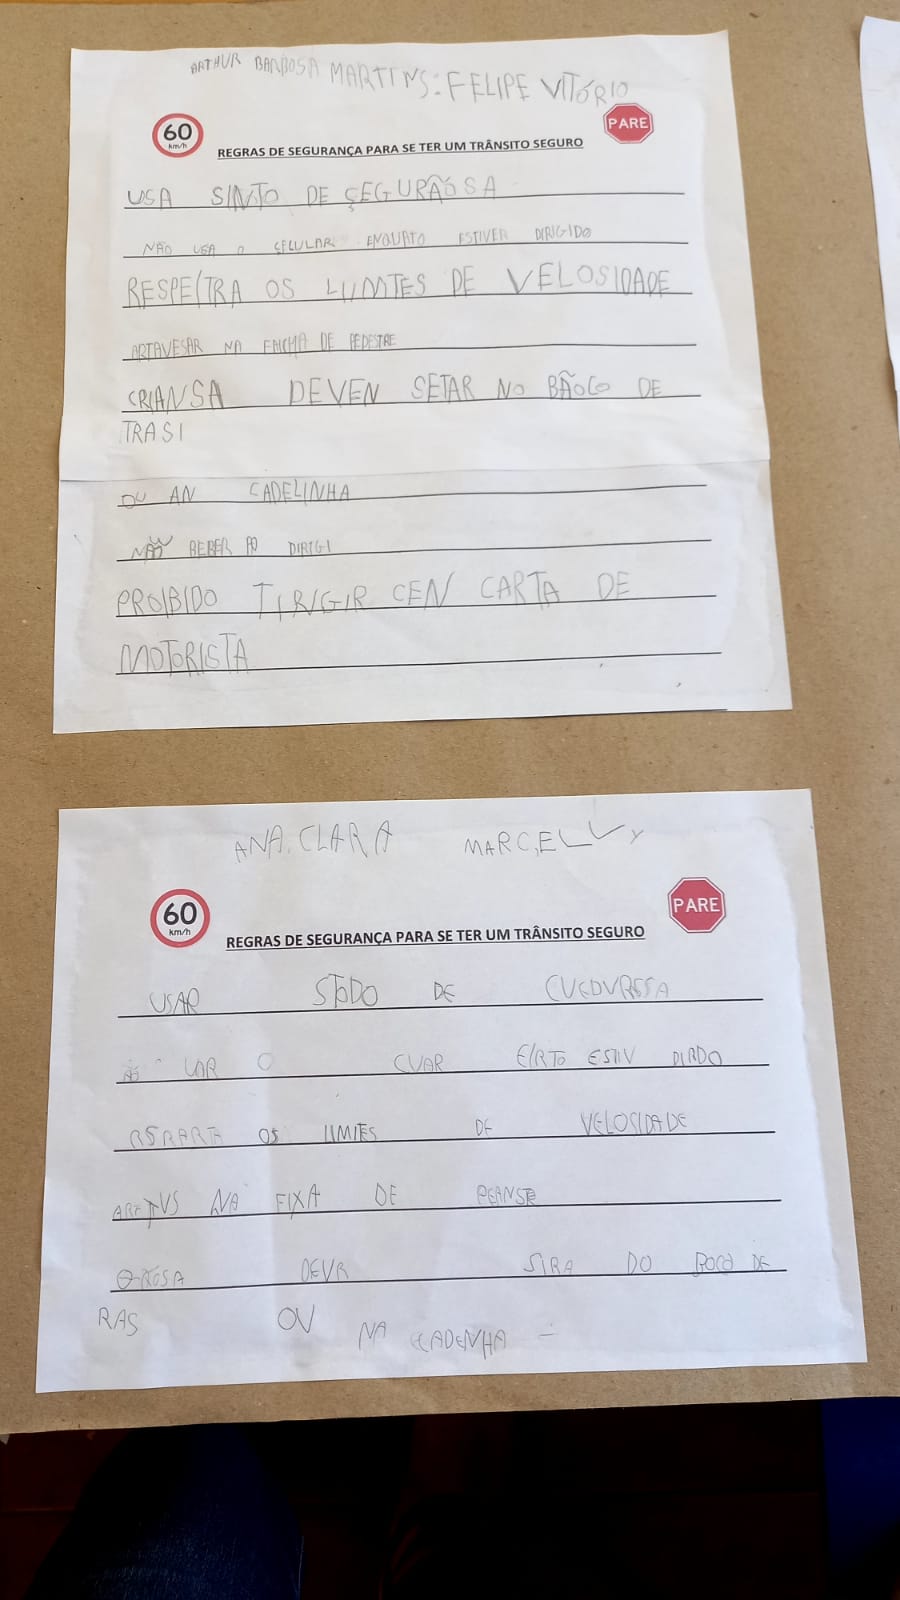 ARTHUR BARBOSA MARTINS: FELIPE VITÓRIO
60 km/h
PARE
REGRAS DE SEGURANÇA PARA SE TER UM TRÂNSITO SEGURO
USA SINTO DE ÇEGURÃOSA
NÃO USA O ÇELULAR ENQUATO ESTIVER DIRIGIDO
RESPEITRA OS LIMITES DE VELOSIDADE
ARTAVESAR NA FAICHA DE PEDESTRE
CRIANSA DEVEN SETAR NO BÃOCO DE
TRASI
OU AN CADELINHA
NÃO BEBER AO DIRIGI
PROIBIDO TIRIGIR CEN CARTA DE
MOTORISTA
ANA.CLARA MARCELLY
60 km/h
PARE
REGRAS DE SEGURANÇA PARA SE TER UM TRÂNSITO SEGURO
USAR DE
O CUAR ESTIV DIRDO
OS LIMITES DE VELOSIDADE
NA FIXA DE PEANSE
DEVR SIRA DO BOCO DE
RAS OV NA CADENHA